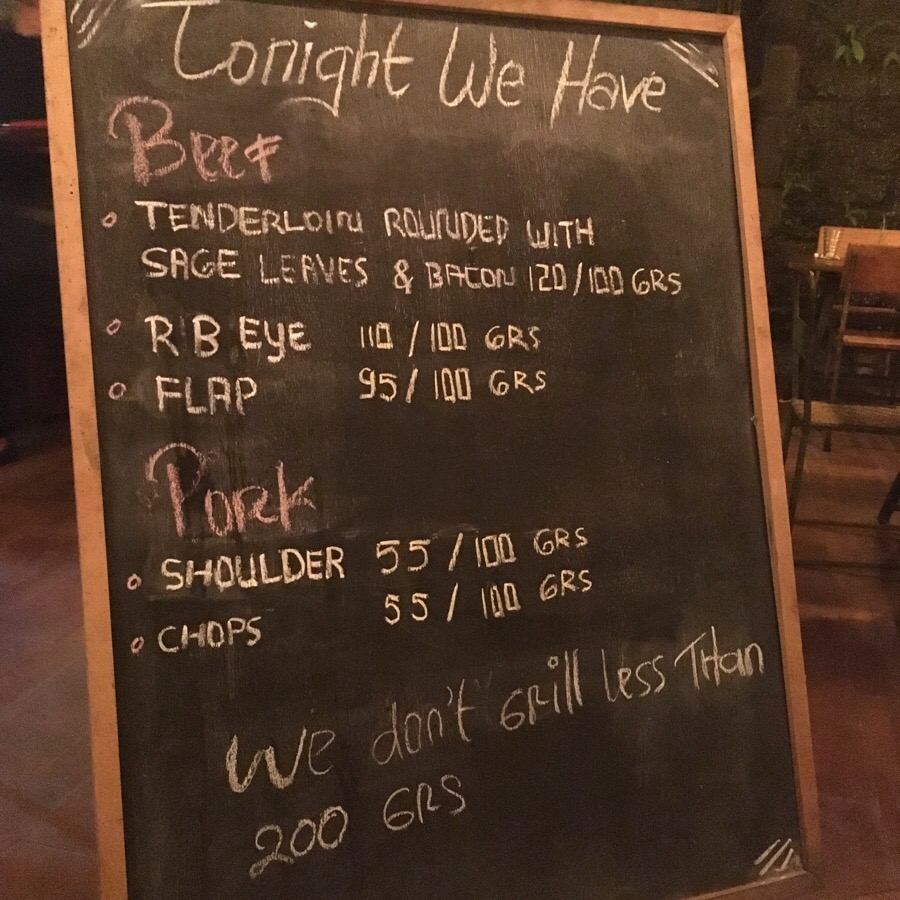 Tonight We Have
Beef
TENDERLOIN ROUNDED WITH
SAGE LEAVES & BACON 120/100 GRS
RIB EYE 110/100 GRS
FLAP 95/100 GRS
Pork
SHOULDER 55/100 GRS
CHOPS 55/100 GRS
We don't Grill less THan
200 GRS